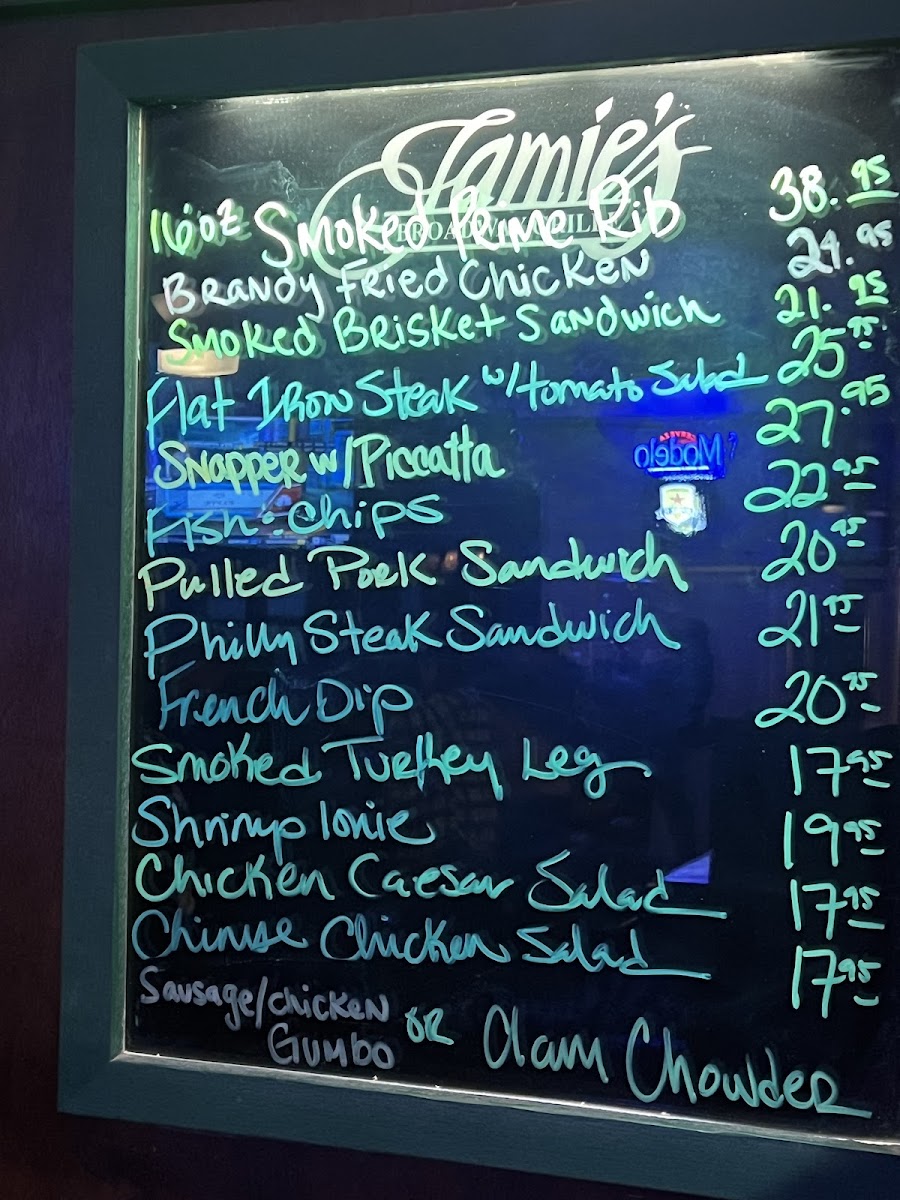 Jamie's
BROADWAY GRILLE
16oz Smoked Prime Rib 38.95
Brandy Fried Chicken 24.95
Smoked Brisket Sandwich 21.95
Flat Iron Steak w/tomato Salad 25.95
Snapper w/Piccatta 27.95
Fish - Chips 22.95
Pulled Pork Sandwich 20.95
Philly Steak Sandwich 21.95
French Dip 20.95
Smoked Turkey Leg 17.95
Shrimp louie 19.95
Chicken Caesar Salad 17.95
Chinese Chicken Salad 17.95
Sausage/chicken Gumbo OR Clam Chowder
CERVEZA
Modelo